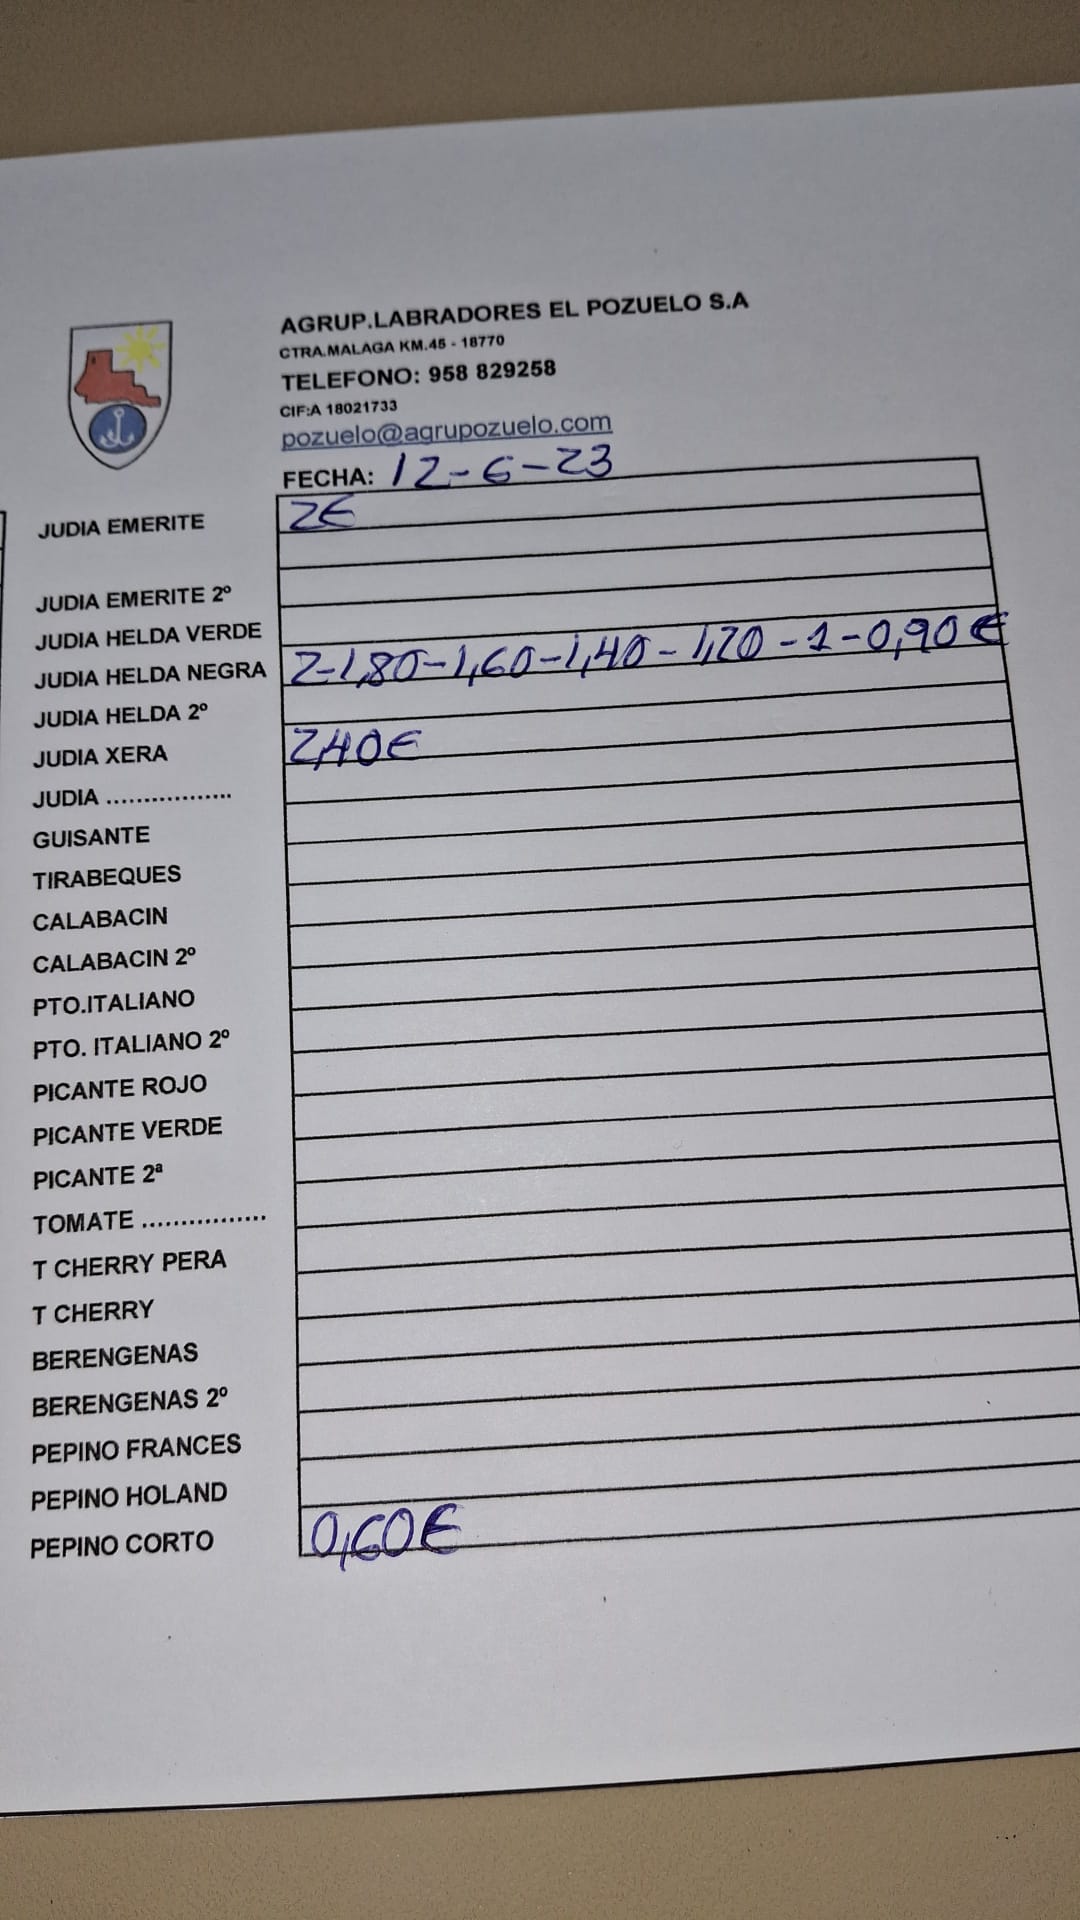 AGRUP.LABRADORES EL POZUELO S.A
CTRA.MALAGA KM.45 - 18770
TELEFONO: 958 829258
CIF:A 18021733
pozuelo@agrupozuelo.com
FECHA: 12-6-23
JUDIA EMERITE 2€
JUDIA EMERITE 2º
JUDIA HELDA VERDE
JUDIA HELDA NEGRA 2-1,80-1,60-1,40-1,20-1-0,90€
JUDIA HELDA 2º
JUDIA XERA 2,40€
JUDIA .................
GUISANTE
TIRABEQUES
CALABACIN
CALABACIN 2º
PTO.ITALIANO
PTO. ITALIANO 2º
PICANTE ROJO
PICANTE VERDE
PICANTE 2ª
TOMATE ................
T CHERRY PERA
T CHERRY
BERENGENAS
BERENGENAS 2º
PEPINO FRANCES
PEPINO HOLAND
PEPINO CORTO 0,60€